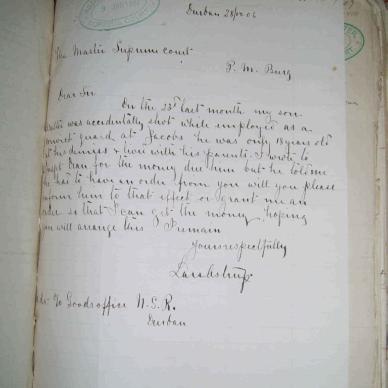 Durban 28/12 06
The Master Supreme Court
P. M. Burg
Dear Sir
On the 23rd last month my son
was accidentally shot while employed as a
guard at Jacobs he was only 18 years old
at his demise & live with his parents. I wrote to
for the money due him but he told me
he has to have an order from you will you please
inform him to that effect or grant me an
order so that I can get the money, hoping
you will arrange this I remain
Yours respectfully
Goods office N. G. R.
Durban